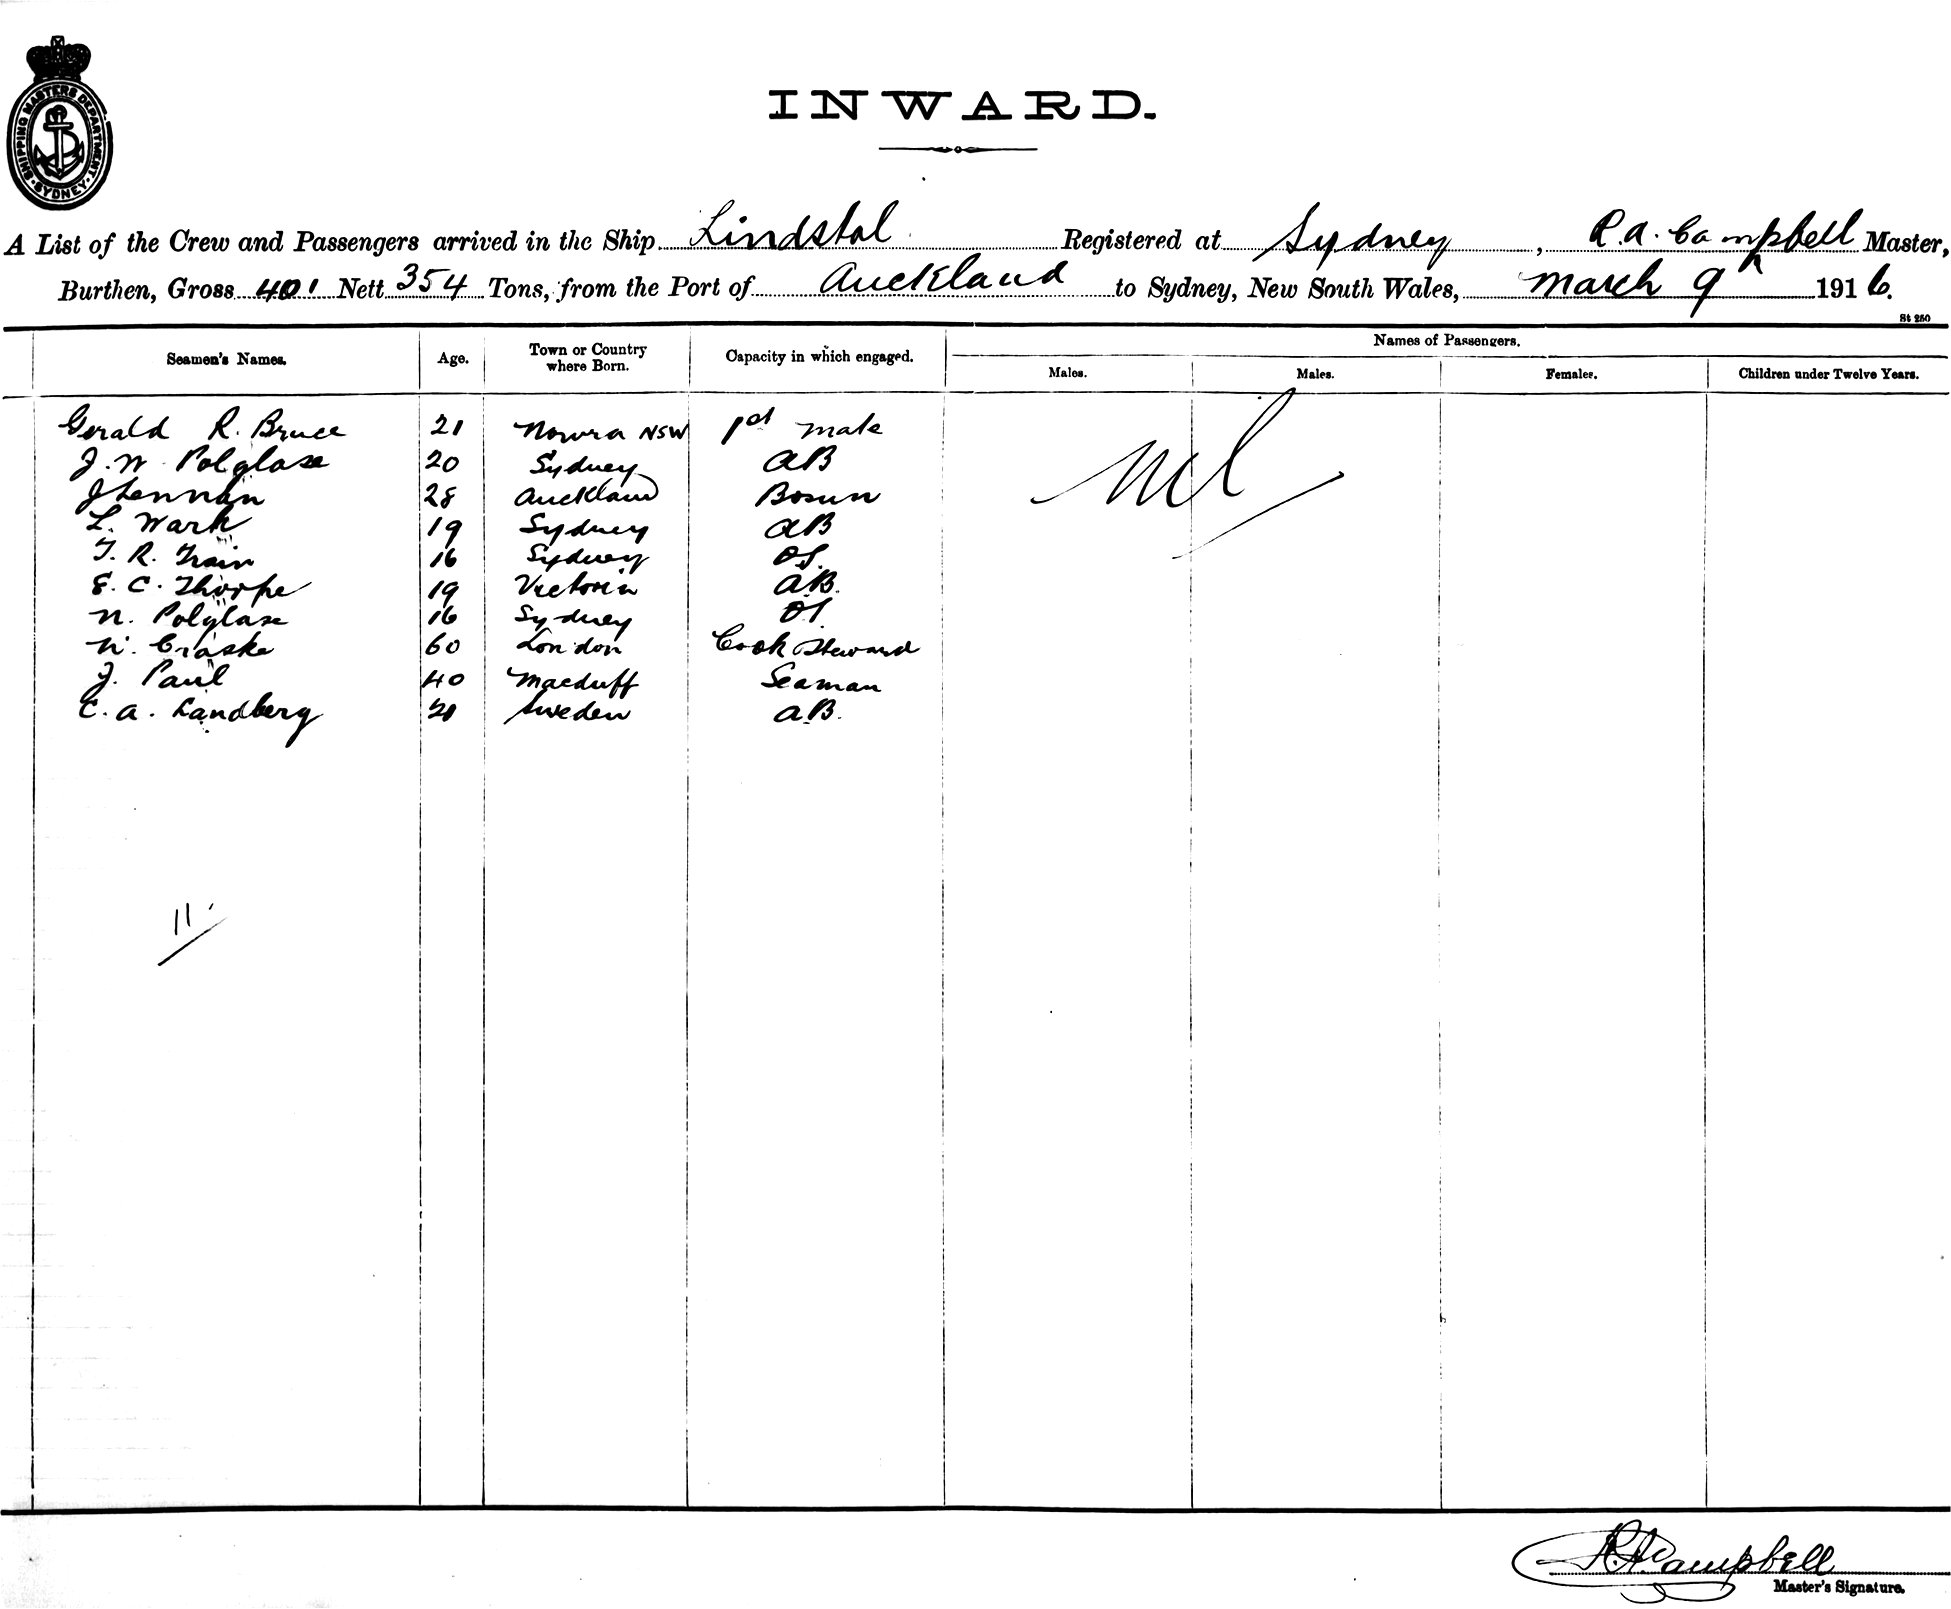 SHIPPING MASTERS DEPARTMENT
SYDNEY
INWARD.
A List of the Crew and Passengers arrived in the Ship Lindstol Registered at Sydney, R.A. Campbell Master,
Burthen, Gross 401 Nett 354 Tons, from the Port of Auckland to Sydney, New South Wales, March 9 1916.
St 250
Seamen's Names. Age. Town or Country where Born. Capacity in which engaged. Names of Passengers.
Males. Males. Females. Children under Twelve Years.
Gerald R. Bruce 21 Nowra NSW 1st Mate
J. W. Polglase 20 Sydney AB
J Lennan 28 Auckland Bosun
L. Wark 19 Sydney AB
T. R. Train 16 Sydney OS.
E. C. Thorpe 19 Victoria AB.
N. Polglase 16 Sydney OS
W. Craske 60 London Cook Steward
J. Paul 40 Macduff Seaman
C. A. Landberg Sweden AB.
Nil
11
R A Campbell
Master's Signature.